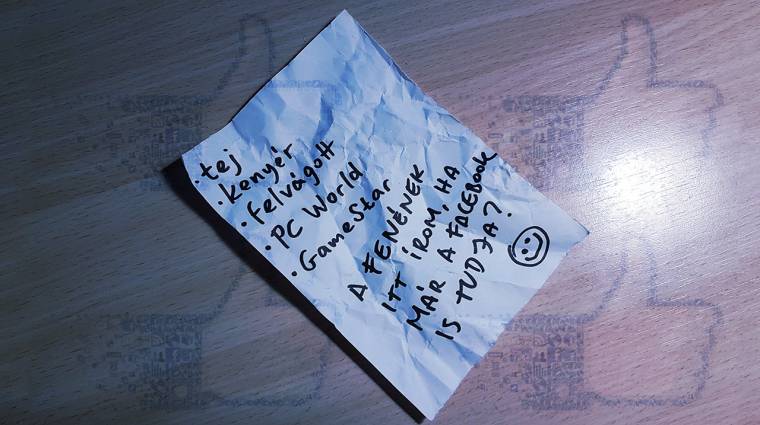 • tej
• Kenyér
• Felvágott
• PC World
• GameStar
A FENÉNEK
ITT ÍROM, HA
MÁR A FACEBOOK
IS TUDJA?